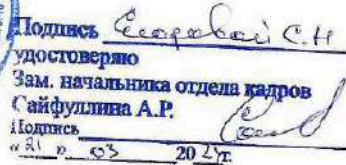 Подпись Егоровой С.Н
удостоверяю
Зам. начальника отдела кадров
Сайфуллина А.Р.
Подпись
"21" 03 2024г.